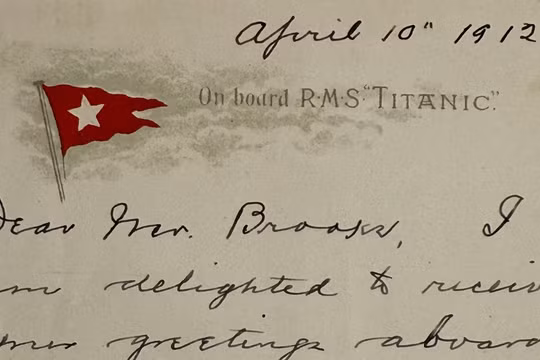 April 10" 1912
On board R·M·S·"TITANIC."
Dear Mr. Brooks, I
m delighted to receiv
our greetings aboar